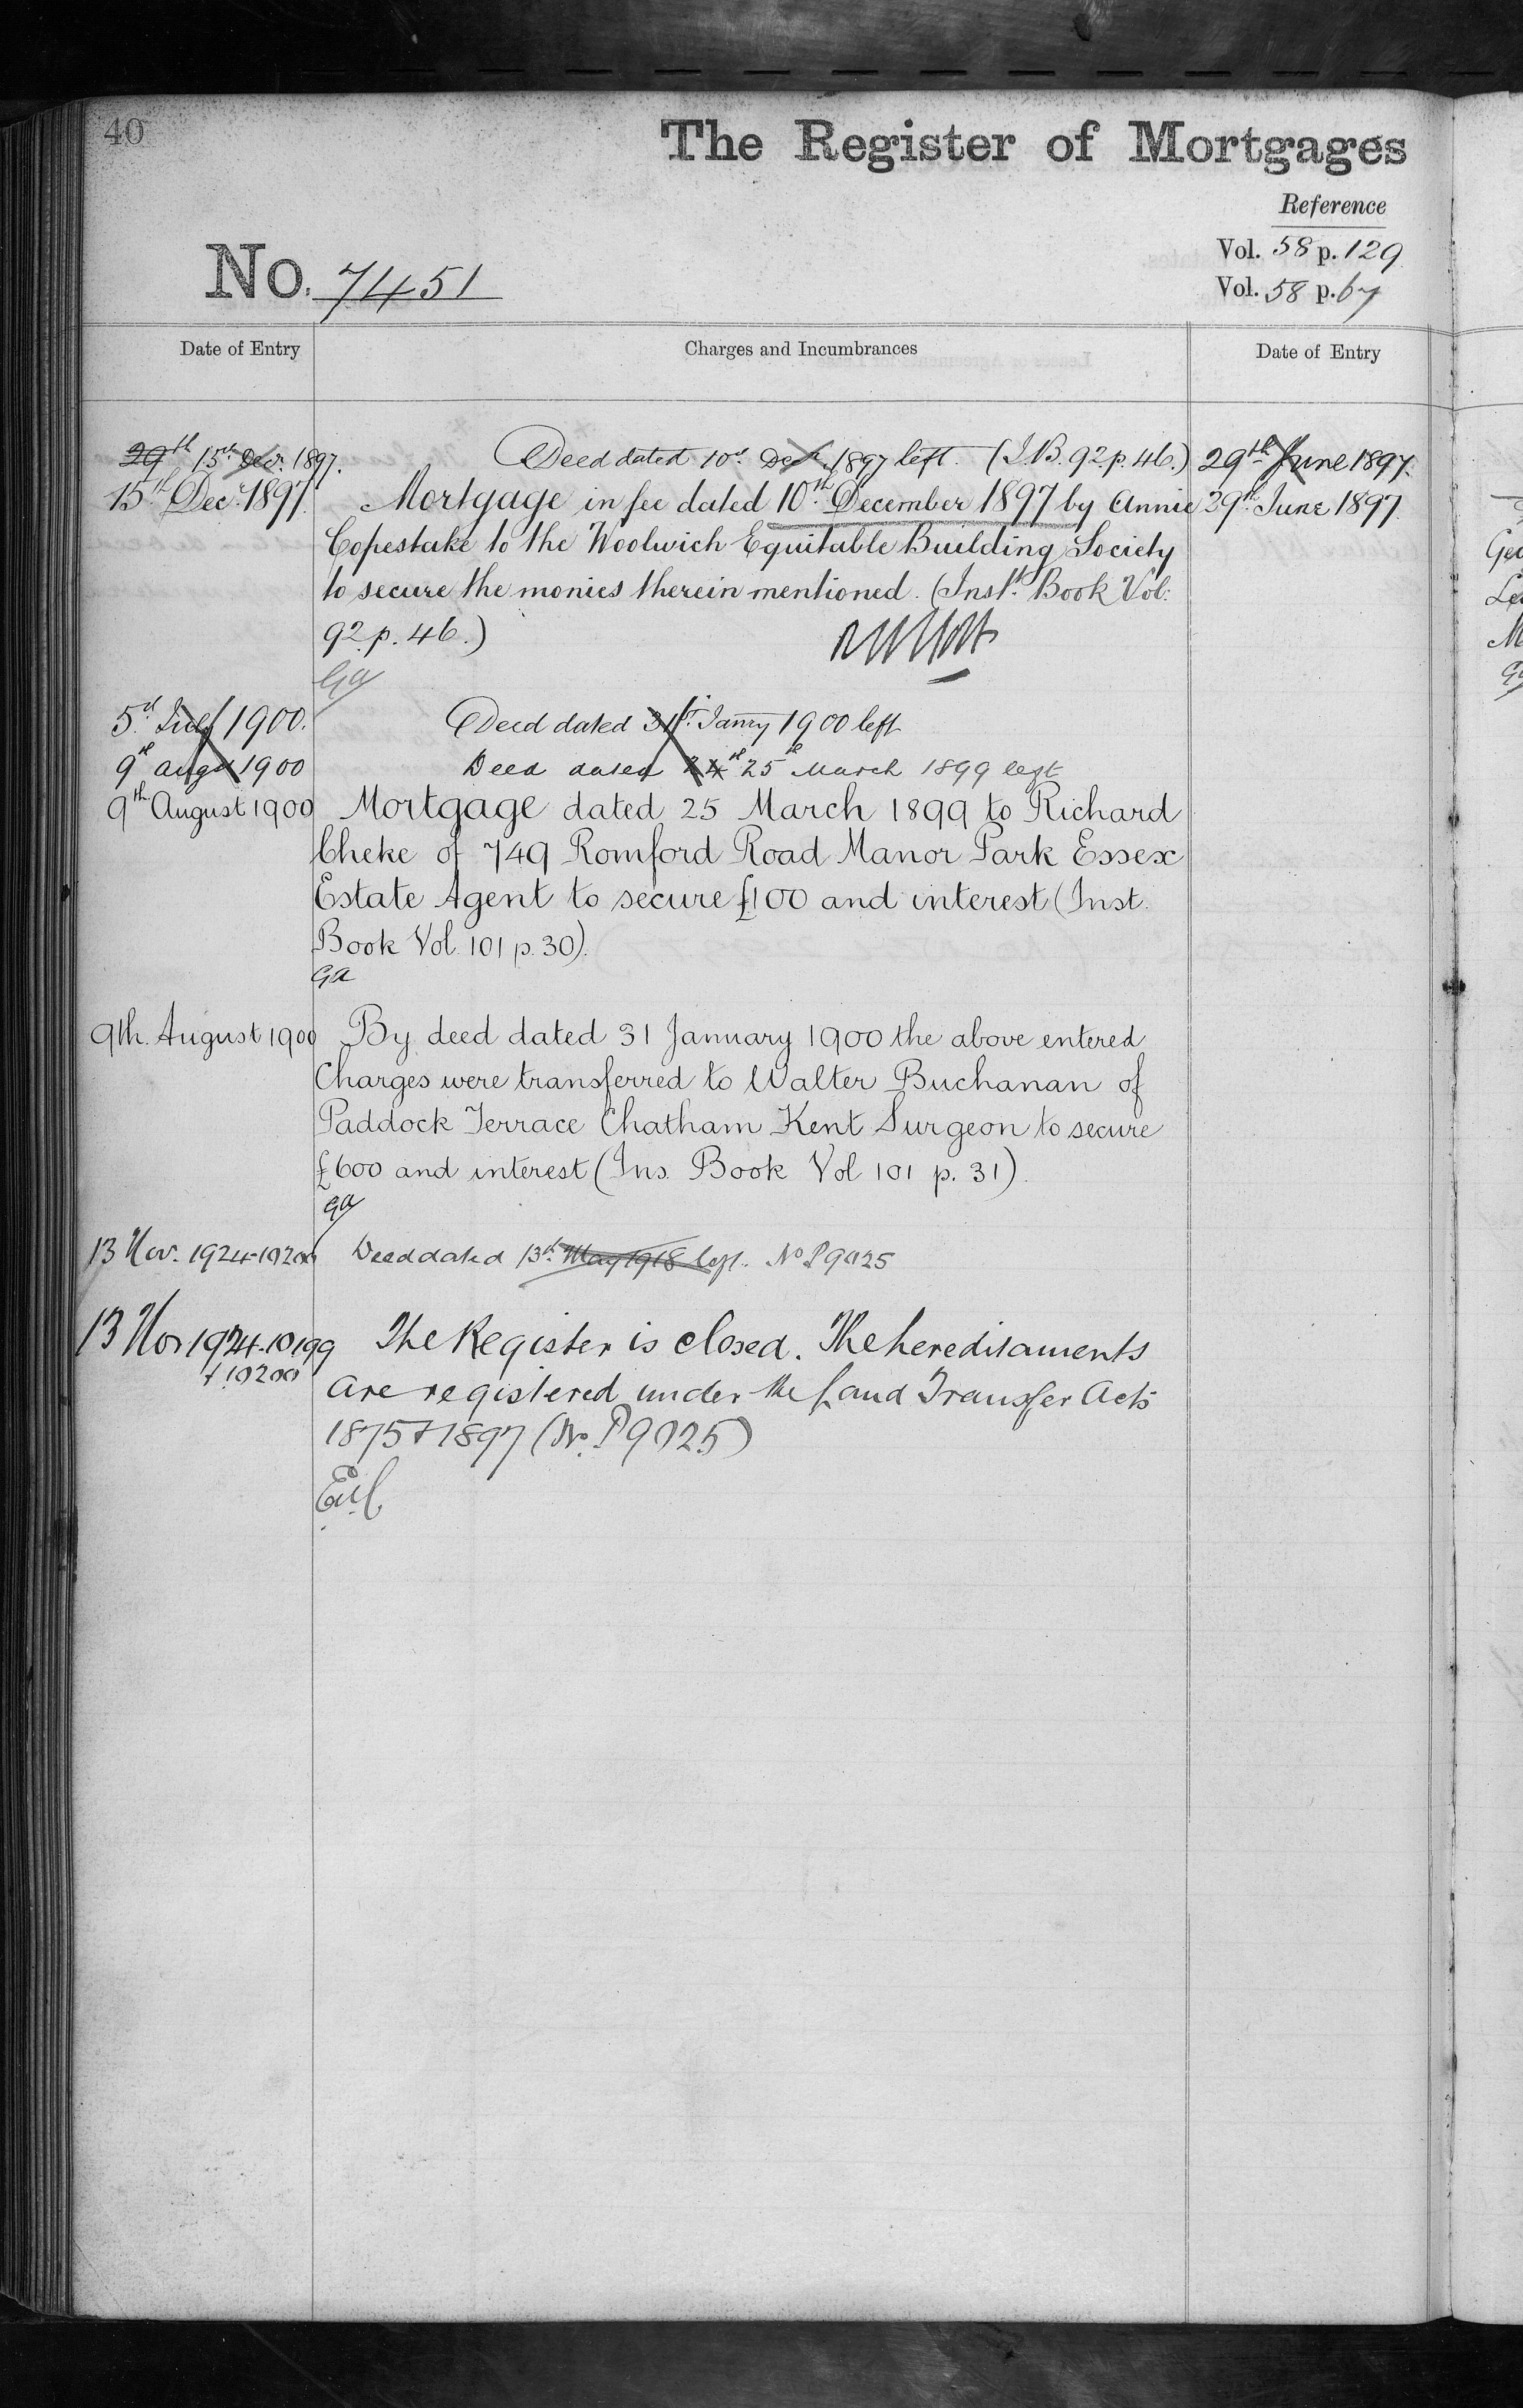 40
The Register of Mortgages
Reference
Vol. 58 p. 129
Vol. 58 p. 67
No. 7451
Date of Entry
Charges and Incumbrances
Date of Entry
29th 15th Decr. 1897. Deed dated 10th Decr. 1897 left. (I.B. 92 p. 46.) 29th June 1897.
15th Decr. 1897. Mortgage in fee dated 10th December 1897 by Annie 29th June 1897.
Copestake to the Woolwich Equitable Building Society
to secure the monies therein mentioned. (Instt. Book Vol.
92 p. 46.)
GA
5th July 1900. Deed dated 31st Janry 1900 left
9th Augt 1900 Deed dated 24th 25th March 1899 left
9th August 1900 Mortgage dated 25 March 1899 to Richard
Cheke of 749 Romford Road Manor Park Essex
Estate Agent to secure £100 and interest (Inst.
Book Vol. 101 p. 30).
GA
9th. August 1900 By deed dated 31 January 1900 the above entered
Charges were transferred to Walter Buchanan of
Paddock Terrace Chatham Kent Surgeon to secure
£600 and interest (Ins. Book Vol 101 p. 31).
GA
13 Nov. 1924-10200 Deed dated 13th May 1918 left. No P9025
13 Nov 1924-10199 The Register is closed. The hereditaments
+ 10200 are registered under the Land Transfer Acts
1875 + 1897 (No. P9025)